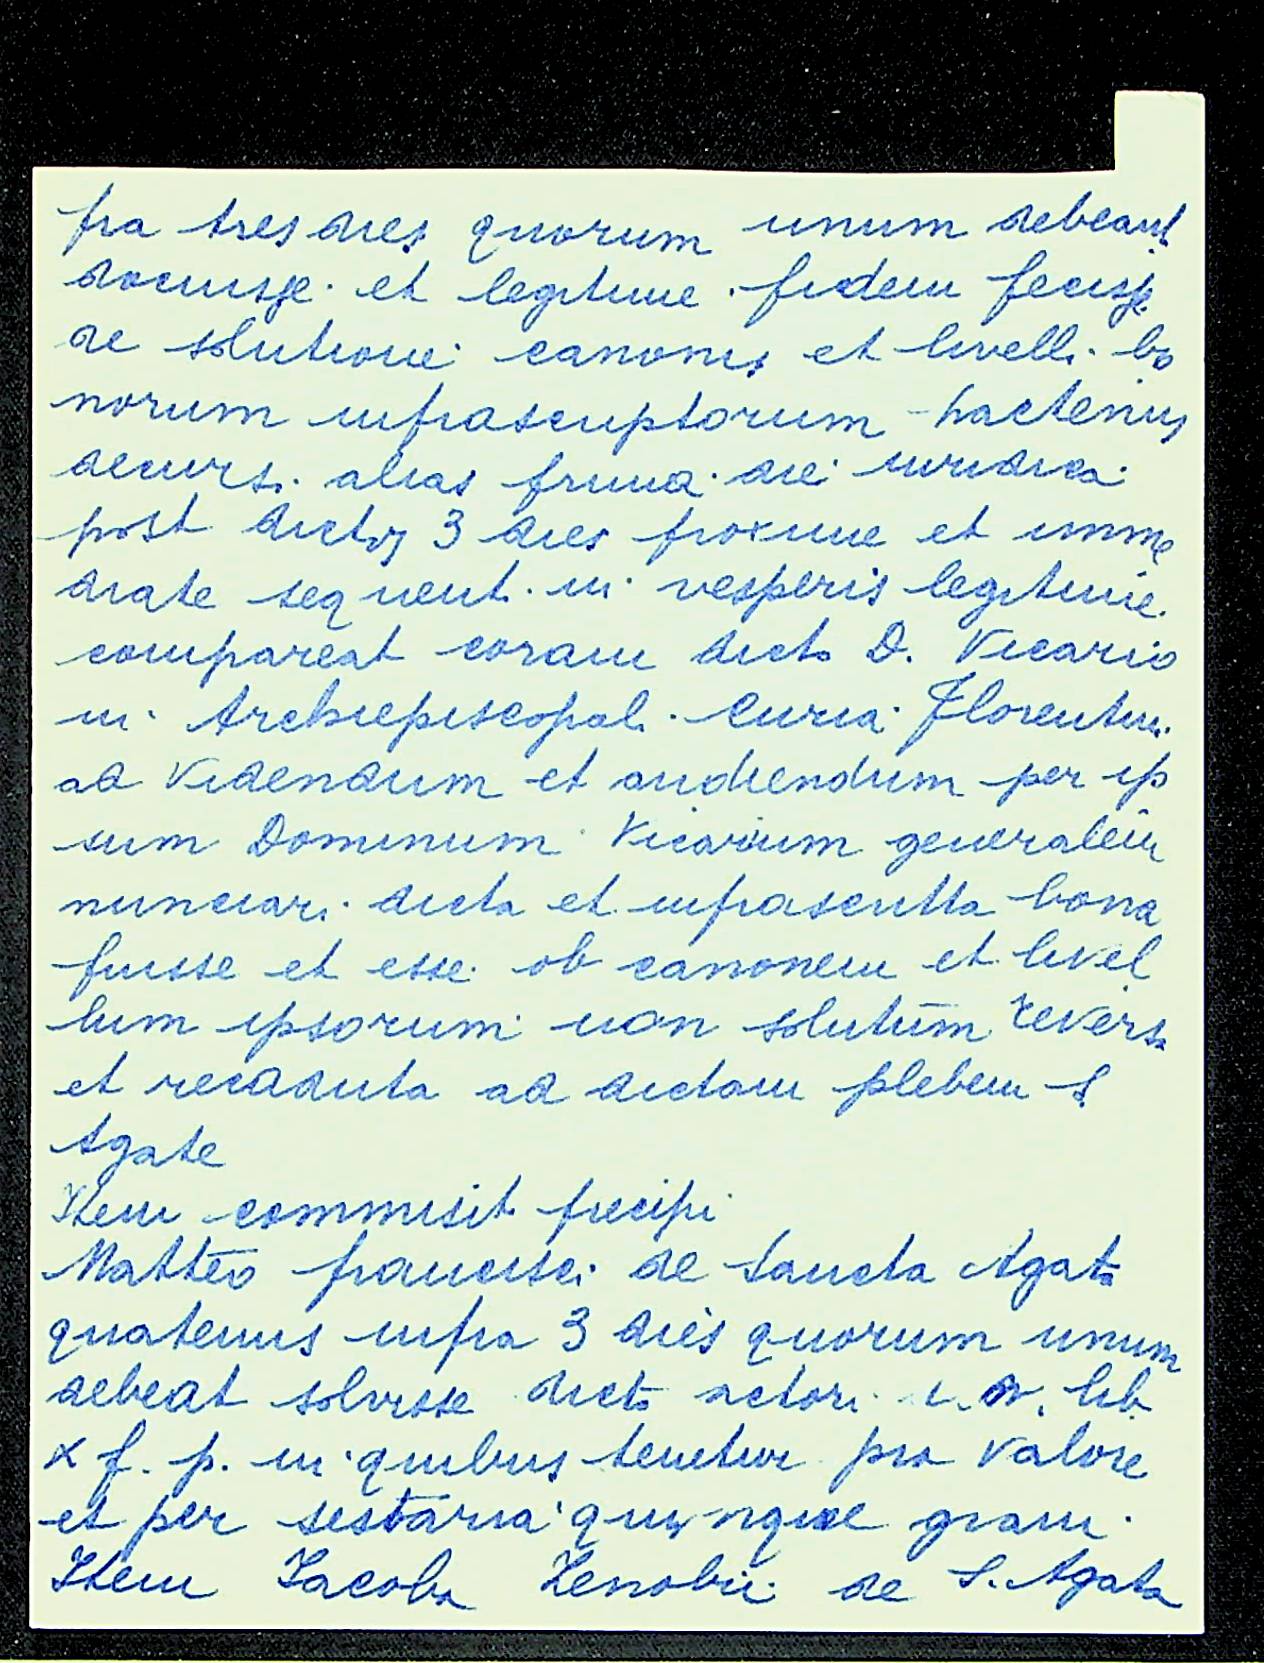 fra tres dies quorum unum debeant
docuisse et legitime fidem fecisse
de solutione canonis et livelli bo
norum infrascriptorum hactenus
decurs. alias prima die iuridica
post dictos 3 dies proxime et imme
diate sequent. in vesperis legitime
compareat coram dicto D. Vicario
in Archiepiscopal. Curia Florentin.
ad videndum et audiendum per ip
sum Dominum Vicarium generalem
nunciari dicta et infrascritta bona
fuisse et esse ob canonem et livel
lum ipsorum non solutum reversa
et recaduta ad dictam plebem S.
Agate
Item commisit precipi
Matteo francisci de Sancta Agata
quatenus infra 3 dies quorum unum
debeat solvisse dicto actori lib.
x f. p. in quibus tenetur pro valore
et per sestaria quinque gran.
Item Iacobo Zenobii de S. Agata